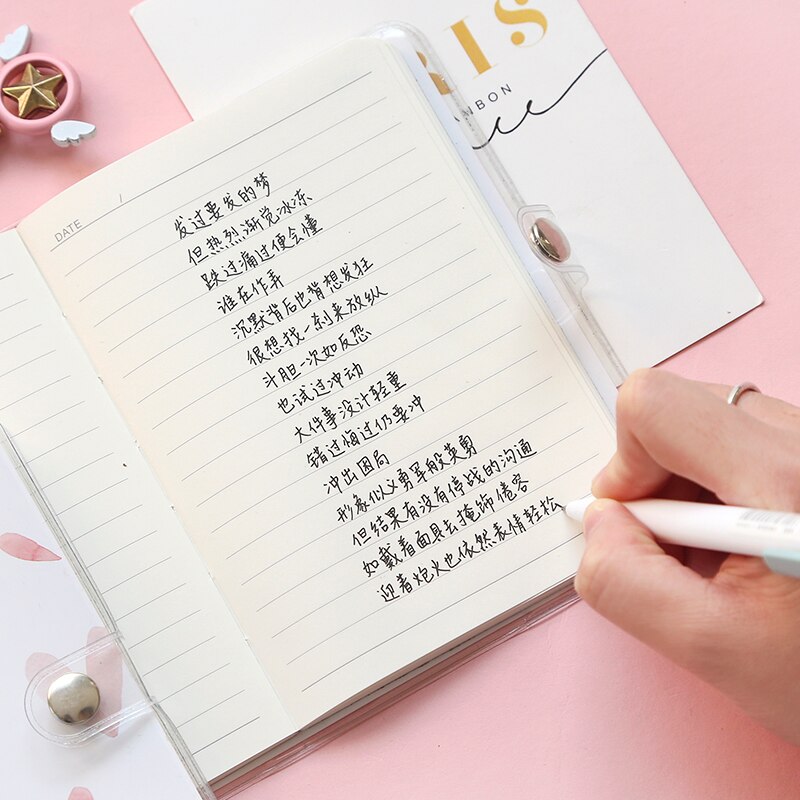 RIS
MBON
DATE /
发过要发的梦
但热烈渐觉冰冻
跌过痛过便会懂
谁在作弄
沉默背后也背想发狂
很想找一刹来放纵
斗胆一次如反恐
也试过冲动
大件事没计轻重
错过悔过仍要冲
冲出困局
形象似义勇军般英勇
但结果有没有停战的沟通
如戴着面具去掩饰倦容
迎着炮火也依然表情轻松